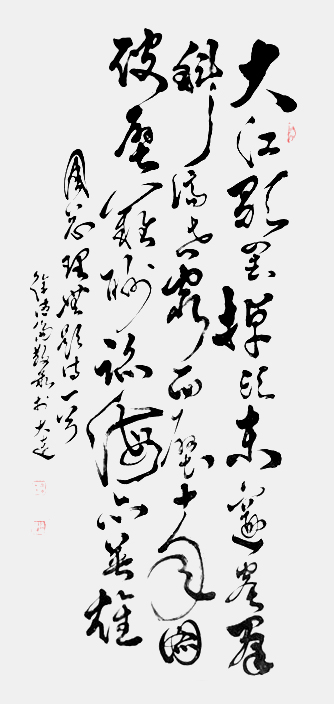 大江歌罷掉頭東邃密群
科濟世窮面壁十年圖
破壁難酬蹈海亦英雄
周總理無題詩一首
於大連